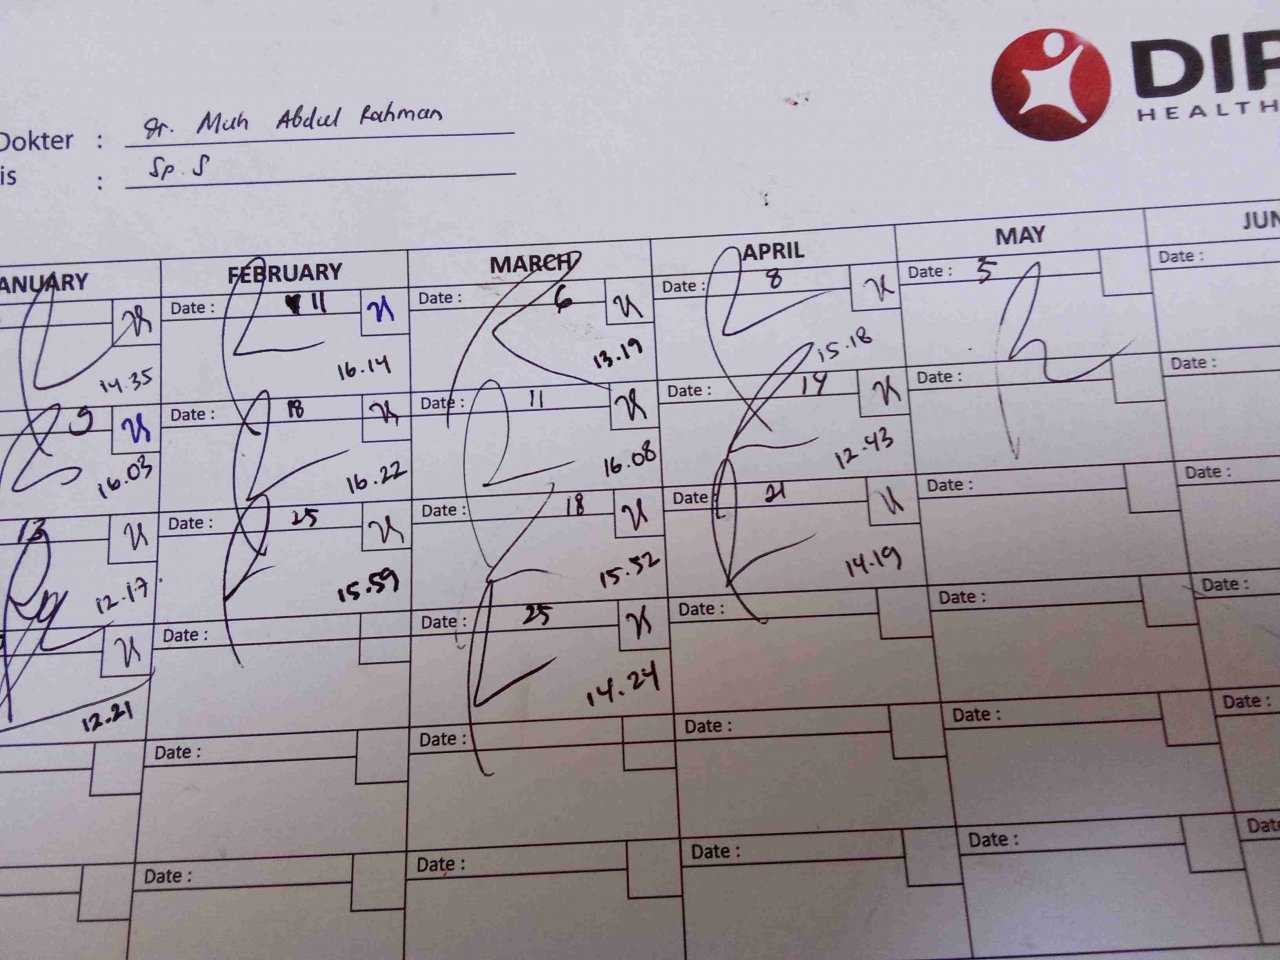 DIP
HEALTH
Dokter : dr. Muh Abdul Rahman
is : Sp. S
ANUARY FEBRUARY MARCH APRIL MAY JUN
Date : 11 Date : 6 Date : 8 Date : 5 Date :
14.35 16.14 13.19 15.18
9 Date : 18 Date : 11 Date : 14 Date : Date :
16.03 16.22 16.08 12.43
13 Date : 25 Date : 18 Date : 21 Date : Date :
12.17 15.59 15.52 14.19
Date : Date : 25 Date : Date : Date :
12.21 14.24
Date : Date : Date : Date : Date :
Date : Date : Date : Date : Dat